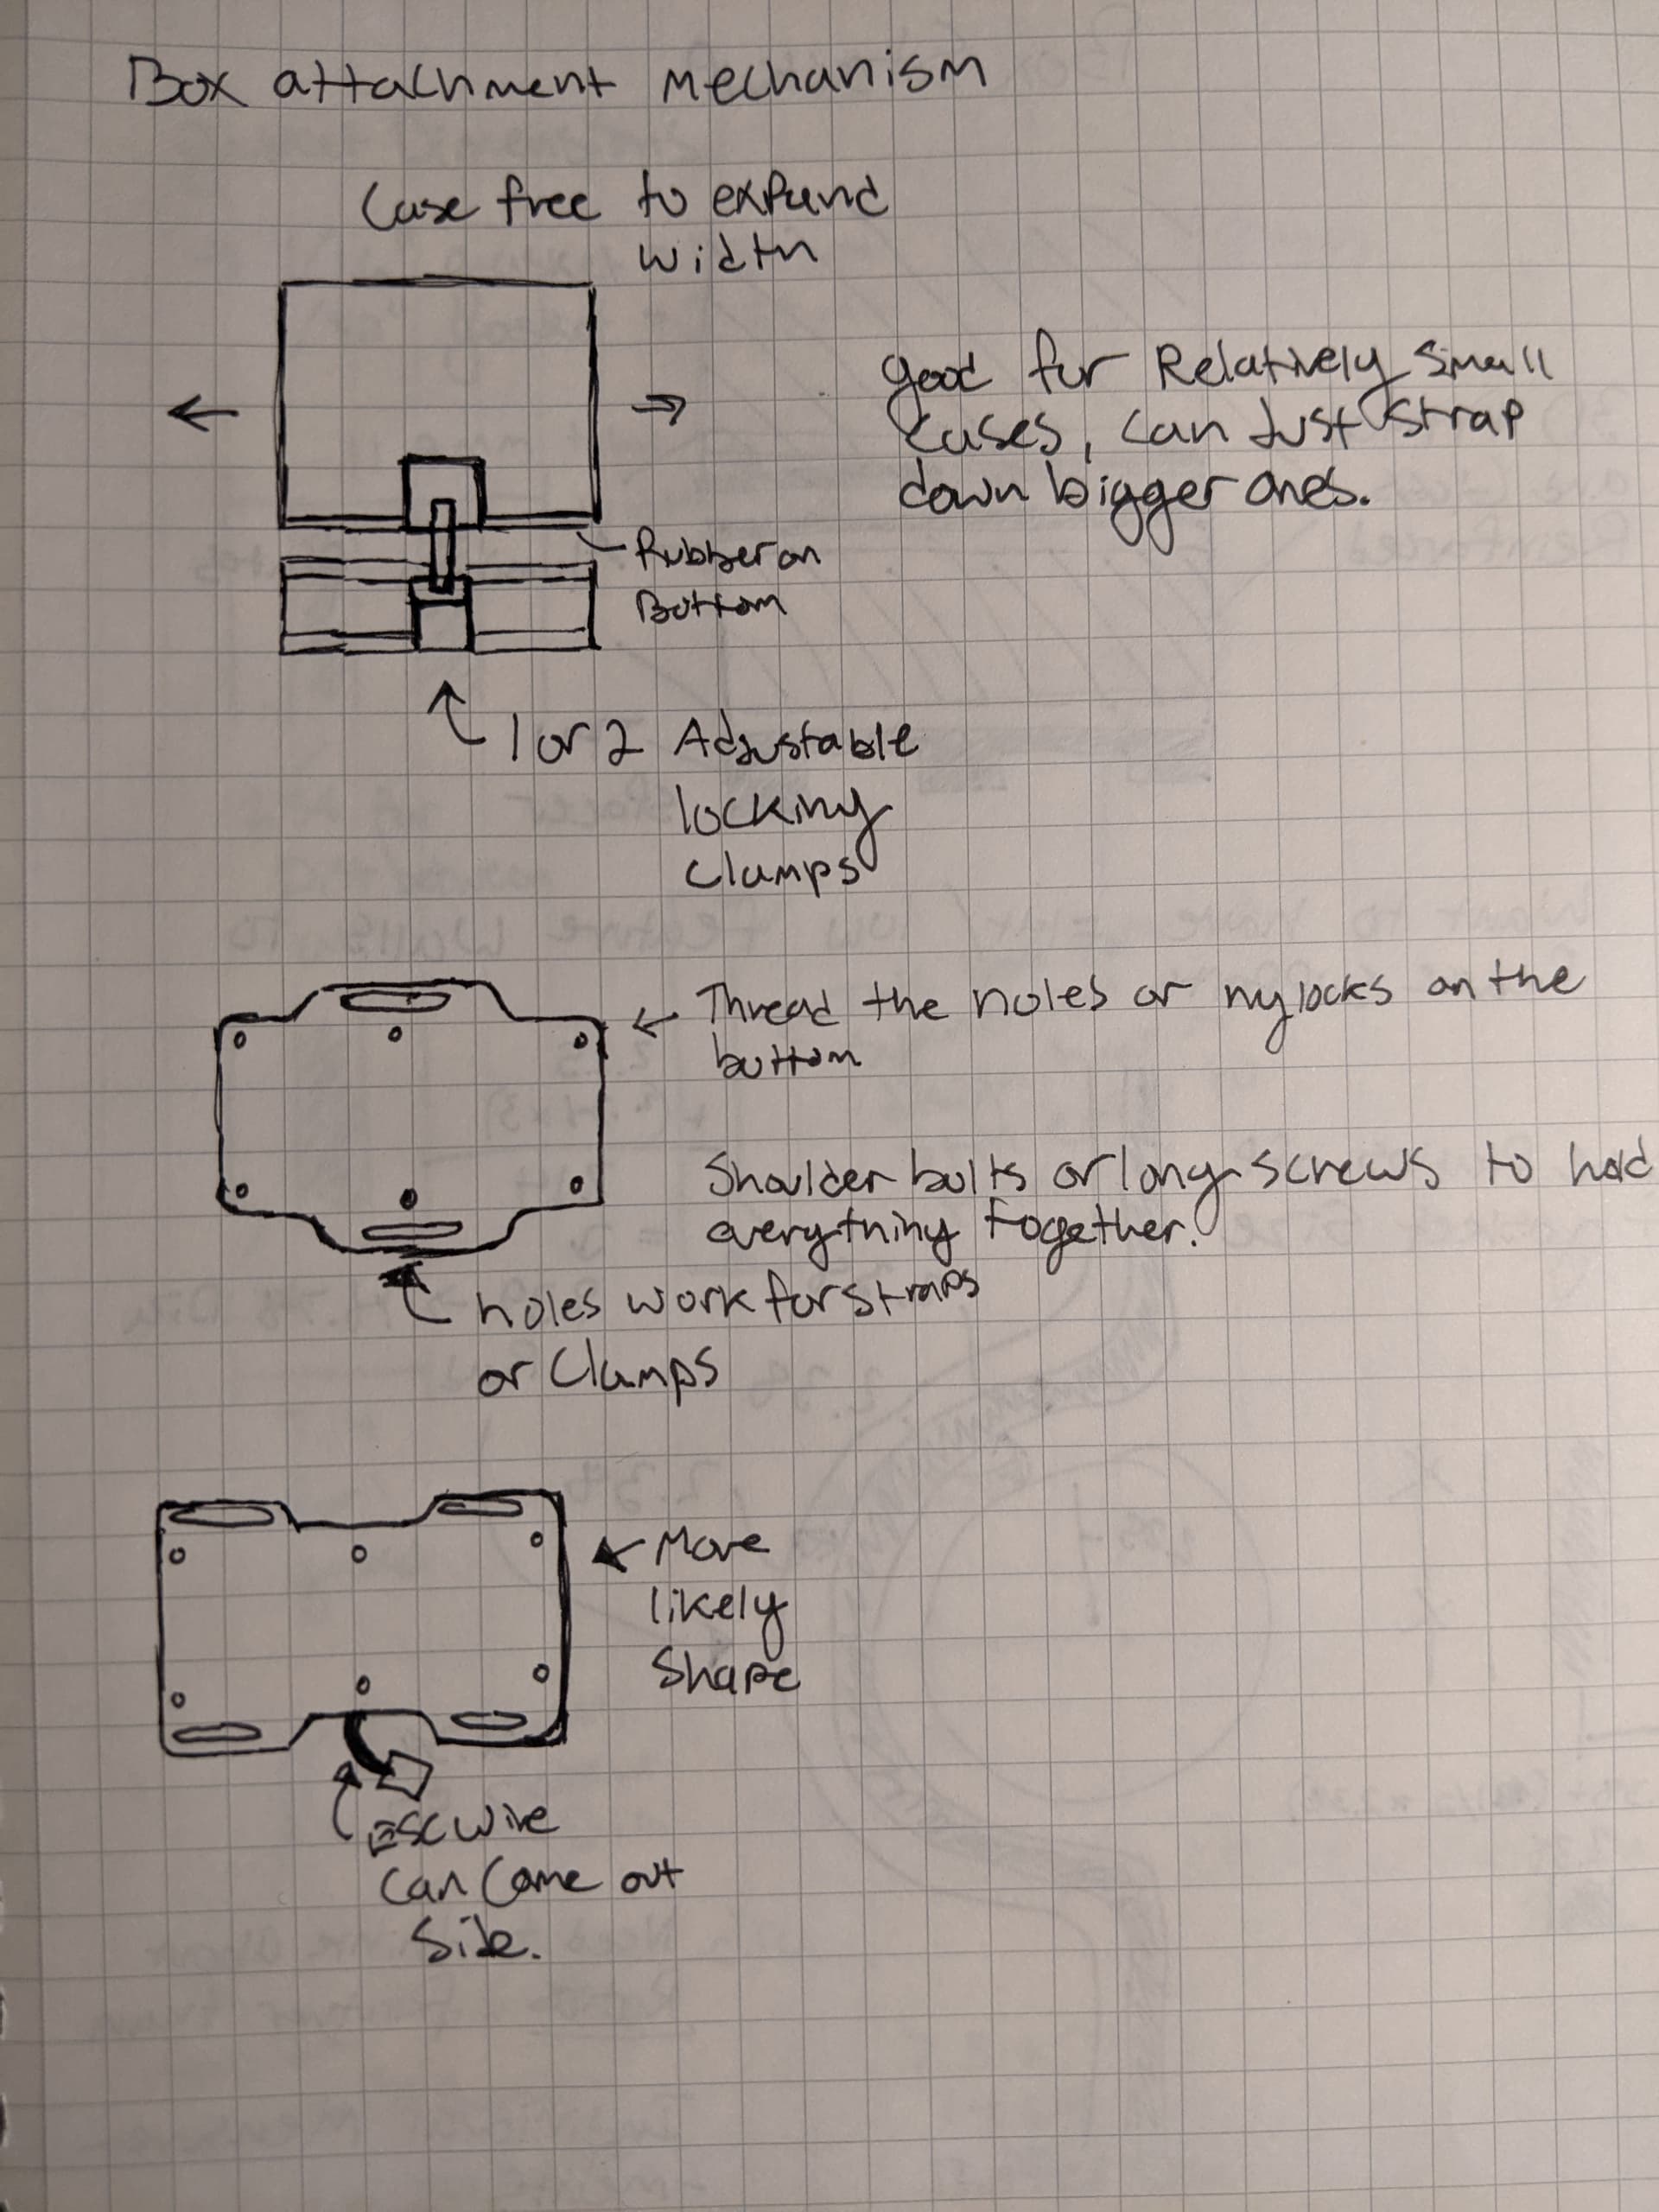 Box attachment mechanism
Case free to expand
width
good for Relatively small
cases, can just strap
down bigger ones.
Rubber on
Bottom
1 or 2 Adjustable
locking
clamps
Thread the holes or nylocks on the
bottom
Shoulder bolts or long screws to hold
everything together.
holes work for straps
or Clamps
More
likely
Shape
ESC wire
can come out
side.